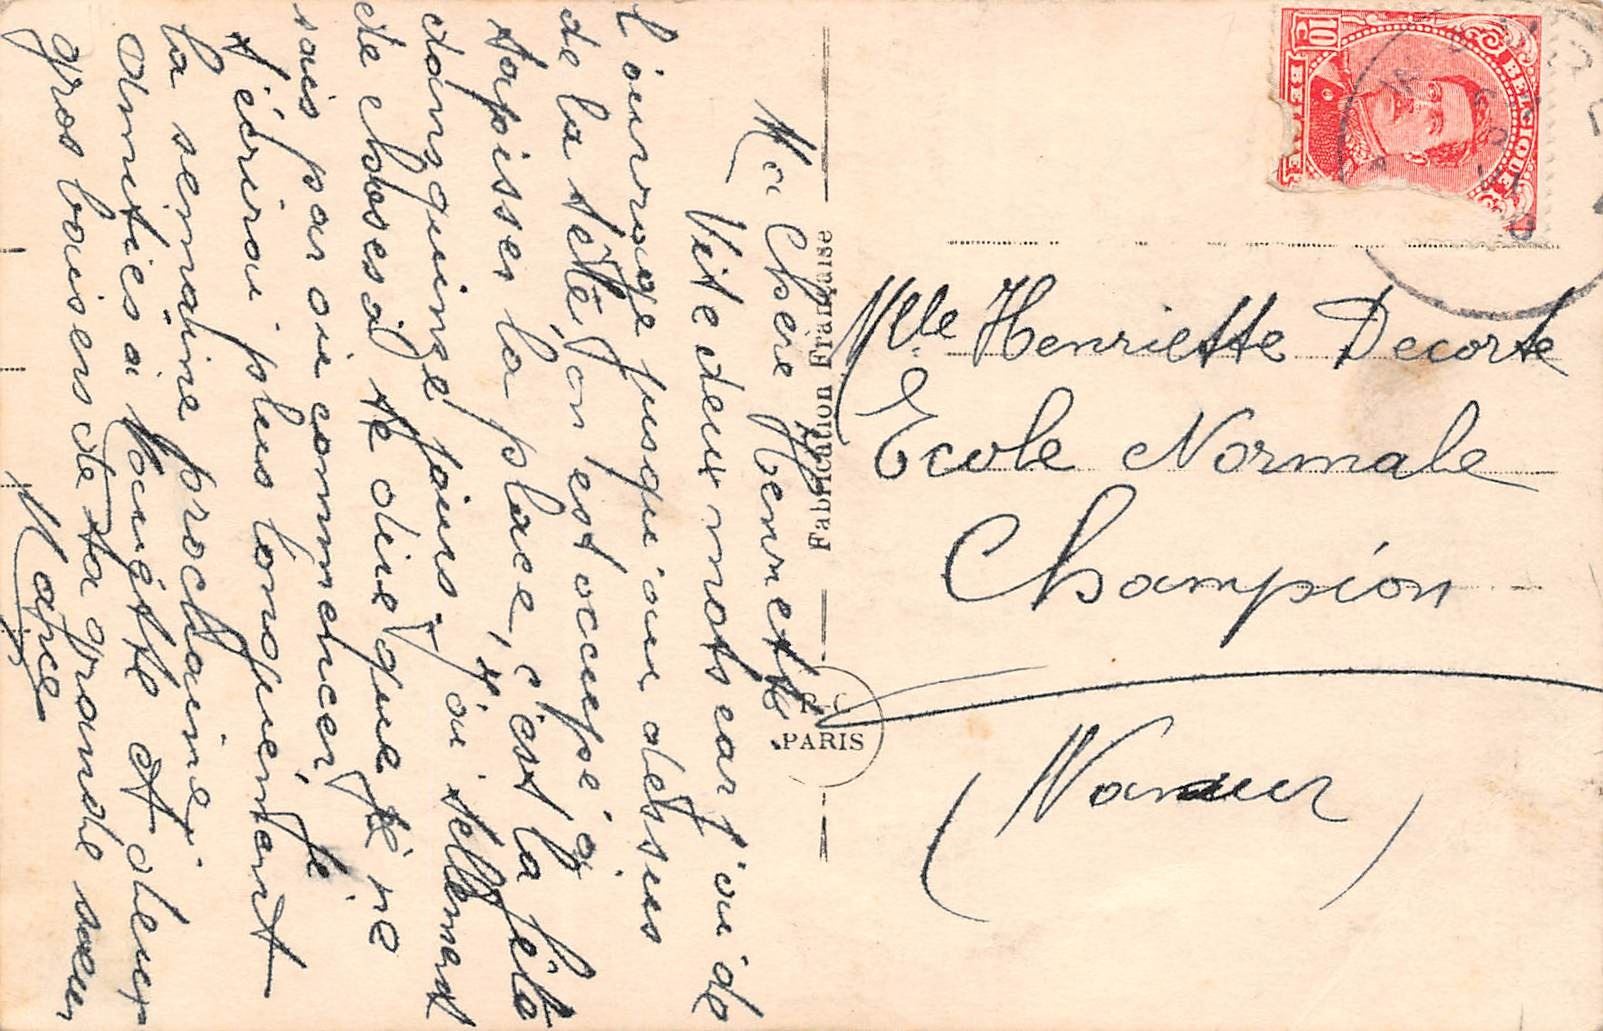 Ma Chère Henriette.
Vite deux mots car j'ai de
l'ouvrage jusqu'au dessus
de la tête, on est occupé à
tapisser la place, c'est la fête
dans quinze jours. J'ai tellement
de choses à te dire que je ne
sais par où commencer, je
t'écrirai plus longuement
la semaine prochaine.
Amitiés à et deux
gros baisers de ta grande sœur
Fabrication Française
PARIS
10 C
BELGIQUE
Mlle Henriette Decorte
Ecole Normale
Champion
(Namur)